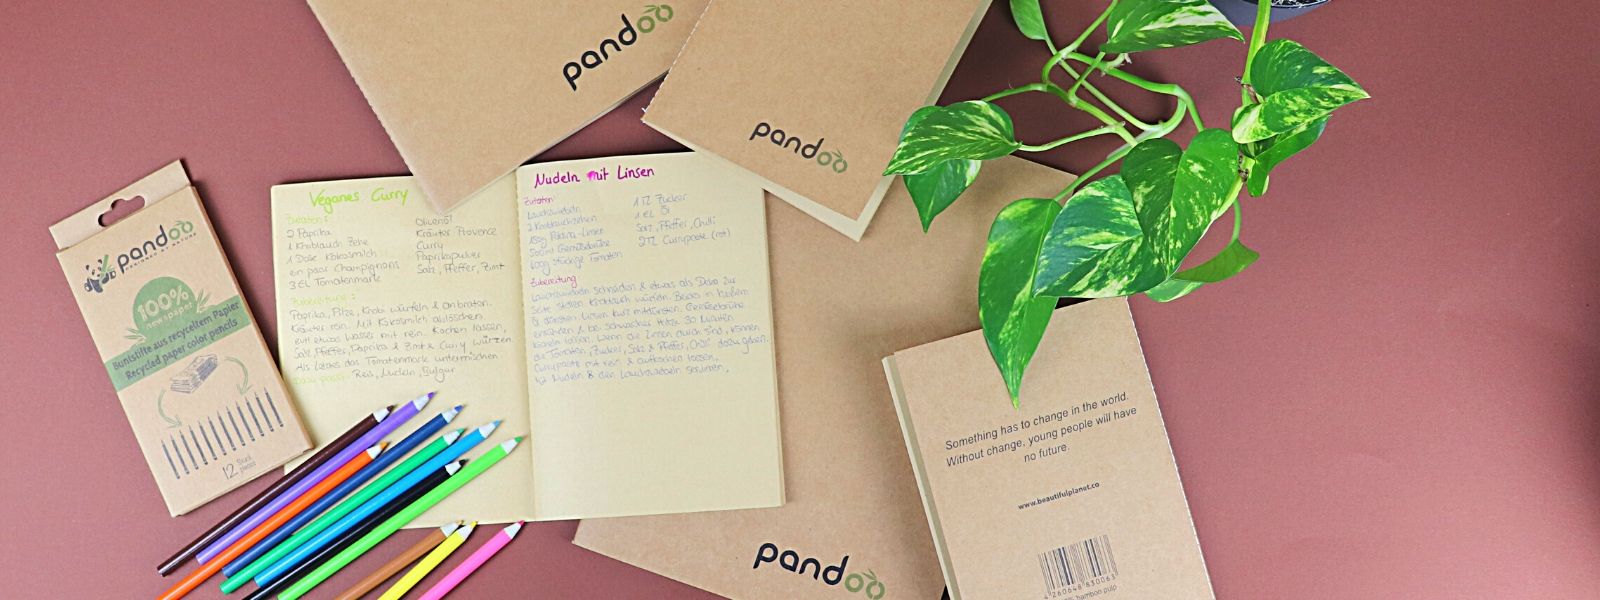 pandoo
pandoo
pandoo
DESIGNED BY NATURE
100%
newspaper
Buntstifte aus recyceltem Papier
Recycled paper color pencils
12 Stück
pieces
Veganes Curry
Zutaten:
2 Paprika
1 Knoblauch Zehe
1 Dose Kokosmilch
ein paar Champignons
3 EL Tomatenmark
Olivenöl
Kräuter Provence
Curry
Paprikapulver
Salz, Pfeffer, Zimt
Zubereitung:
Paprika, Pilze, Knobi würfeln & anbraten.
Kräuter rein. Mit Kokosmilch ablöschen,
evtl etwas Wasser mit rein. Kochen lassen,
Salz, Pfeffer, Paprika & Zimt & Curry würzen
Als letztes das Tomatenmark untermischen.
Dazu passt: Reis, Nudeln, Bulgur
Nudeln mit Linsen
Zutaten:
Lauchzwiebeln
2 Knoblauchzehen
150g Linsen
500ml Gemüsebrühe
600g stückige Tomaten
1 TL Zucker
1 EL Öl
Salz, Pfeffer, Chilli
2TL Currypaste (rot)
Zubereitung
Lauchzwiebeln schneiden & etwas als Deko zur
Seite stellen Knoblauch würfeln. Beides in heißem
Öl dünsten Linsen kurz mitdünsten. Gemüsebrühe
& bei schwacher Hitze 30 Minuten
köcheln lassen. Wenn die Linsen durch sind, können
die Tomaten, Zucker, Salz & Pfeffer, Chilli dazu gehen.
Currypaste mit rein & aufkochen lassen.
Mit Nudeln & den Lauchzwiebeln servieren.
Something has to change in the world.
Without change, young people will have
no future.
www.beautifulplanet.co
4 260648 830063
bamboo pulp
pandoo